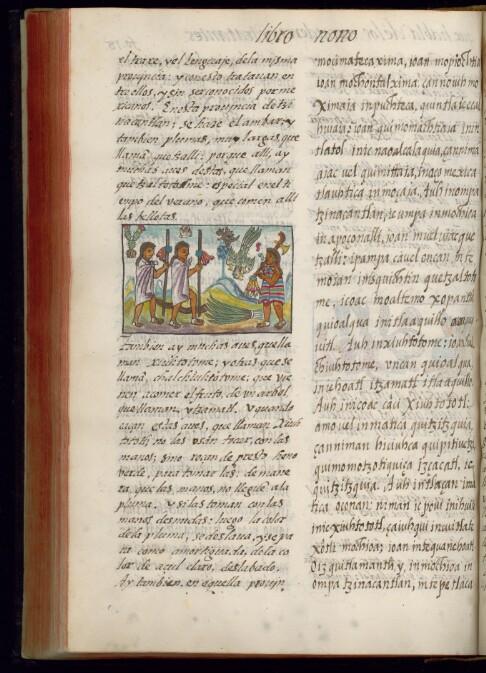 libro nono
el traxe, y el lenguaje, de la misma
prouincia: y con esto tratauan en
tre ellos, y sin ser conocidos por me
xicanos. En esta prouincia de tzi
nacantlan; se haze el ambar, y
tambien plumas, muy largas, que
llamā, quetzalli: porque alli, ay
muchas aues destas, que llaman
quetzaltotome: especial en el ti
empo del verano, que comen alli
las bellotas.
Tambien ay muchas aues, que lla
man Xiuhtotome; y otras que se
llamā, chalchiuhtotome; que vie
nen a comer el fruto, de vn arbol
que llaman, ytzamatl. Y quando
caçan estas aues, que llaman Xiuh
tototl: no las vsan tocar, con las
manos; sino roçan de presto heno
verde, para tomar las: de mane
ra, que las manos, no llegue a la
pluma. y si las toman con las
manos desnudas: luego la color
de la pluma, se deslaua, y se pa
ra como amortiguada, de la co
lor de açul claro, deslabado.
Ay tambien, en aquella prouin
mocimatecaxima, ioan
ioan mochontalxima. can no iuh mo
ximaia in puchteca, quintlaieecal
huiaia: ioan quimomachtiaia in in
tlatol inic naoalcalaquia,
aiac vel quimittaia, in aço mexica
in oçaia, Auh in ompa
tzinacantlan, ie umpa in mochioa
in apoçonalli, ioan
tzalli: ipampa ca vel oncan
in ixquichtin quetzaltoto
me, icoac in oaltemo xopantla
quioalqua in itlaaquillo aoaqua
uitl. Auh in xiuhtotome: ioan chal
chiuhtotome, vncan quioalqua,
in itzamatl itlaaquillo
Auh in icoac caci Xiuhtototl:
amo vel inmatica quitzitzquia,
çan niman iciuhca quipiuetzi
quimomotzoltiquiça izacatl, ic,
quitzitzquia. Auh intlaçan ima
tica oconan: niman ic poui in ihuiio
inic xiuhtototl, ca iuhqui in xiutlate
xotli mochioa; ioan
oiz quitlamantli, y, in mochioa in
ompa tzinacantlan, in izpetlaca